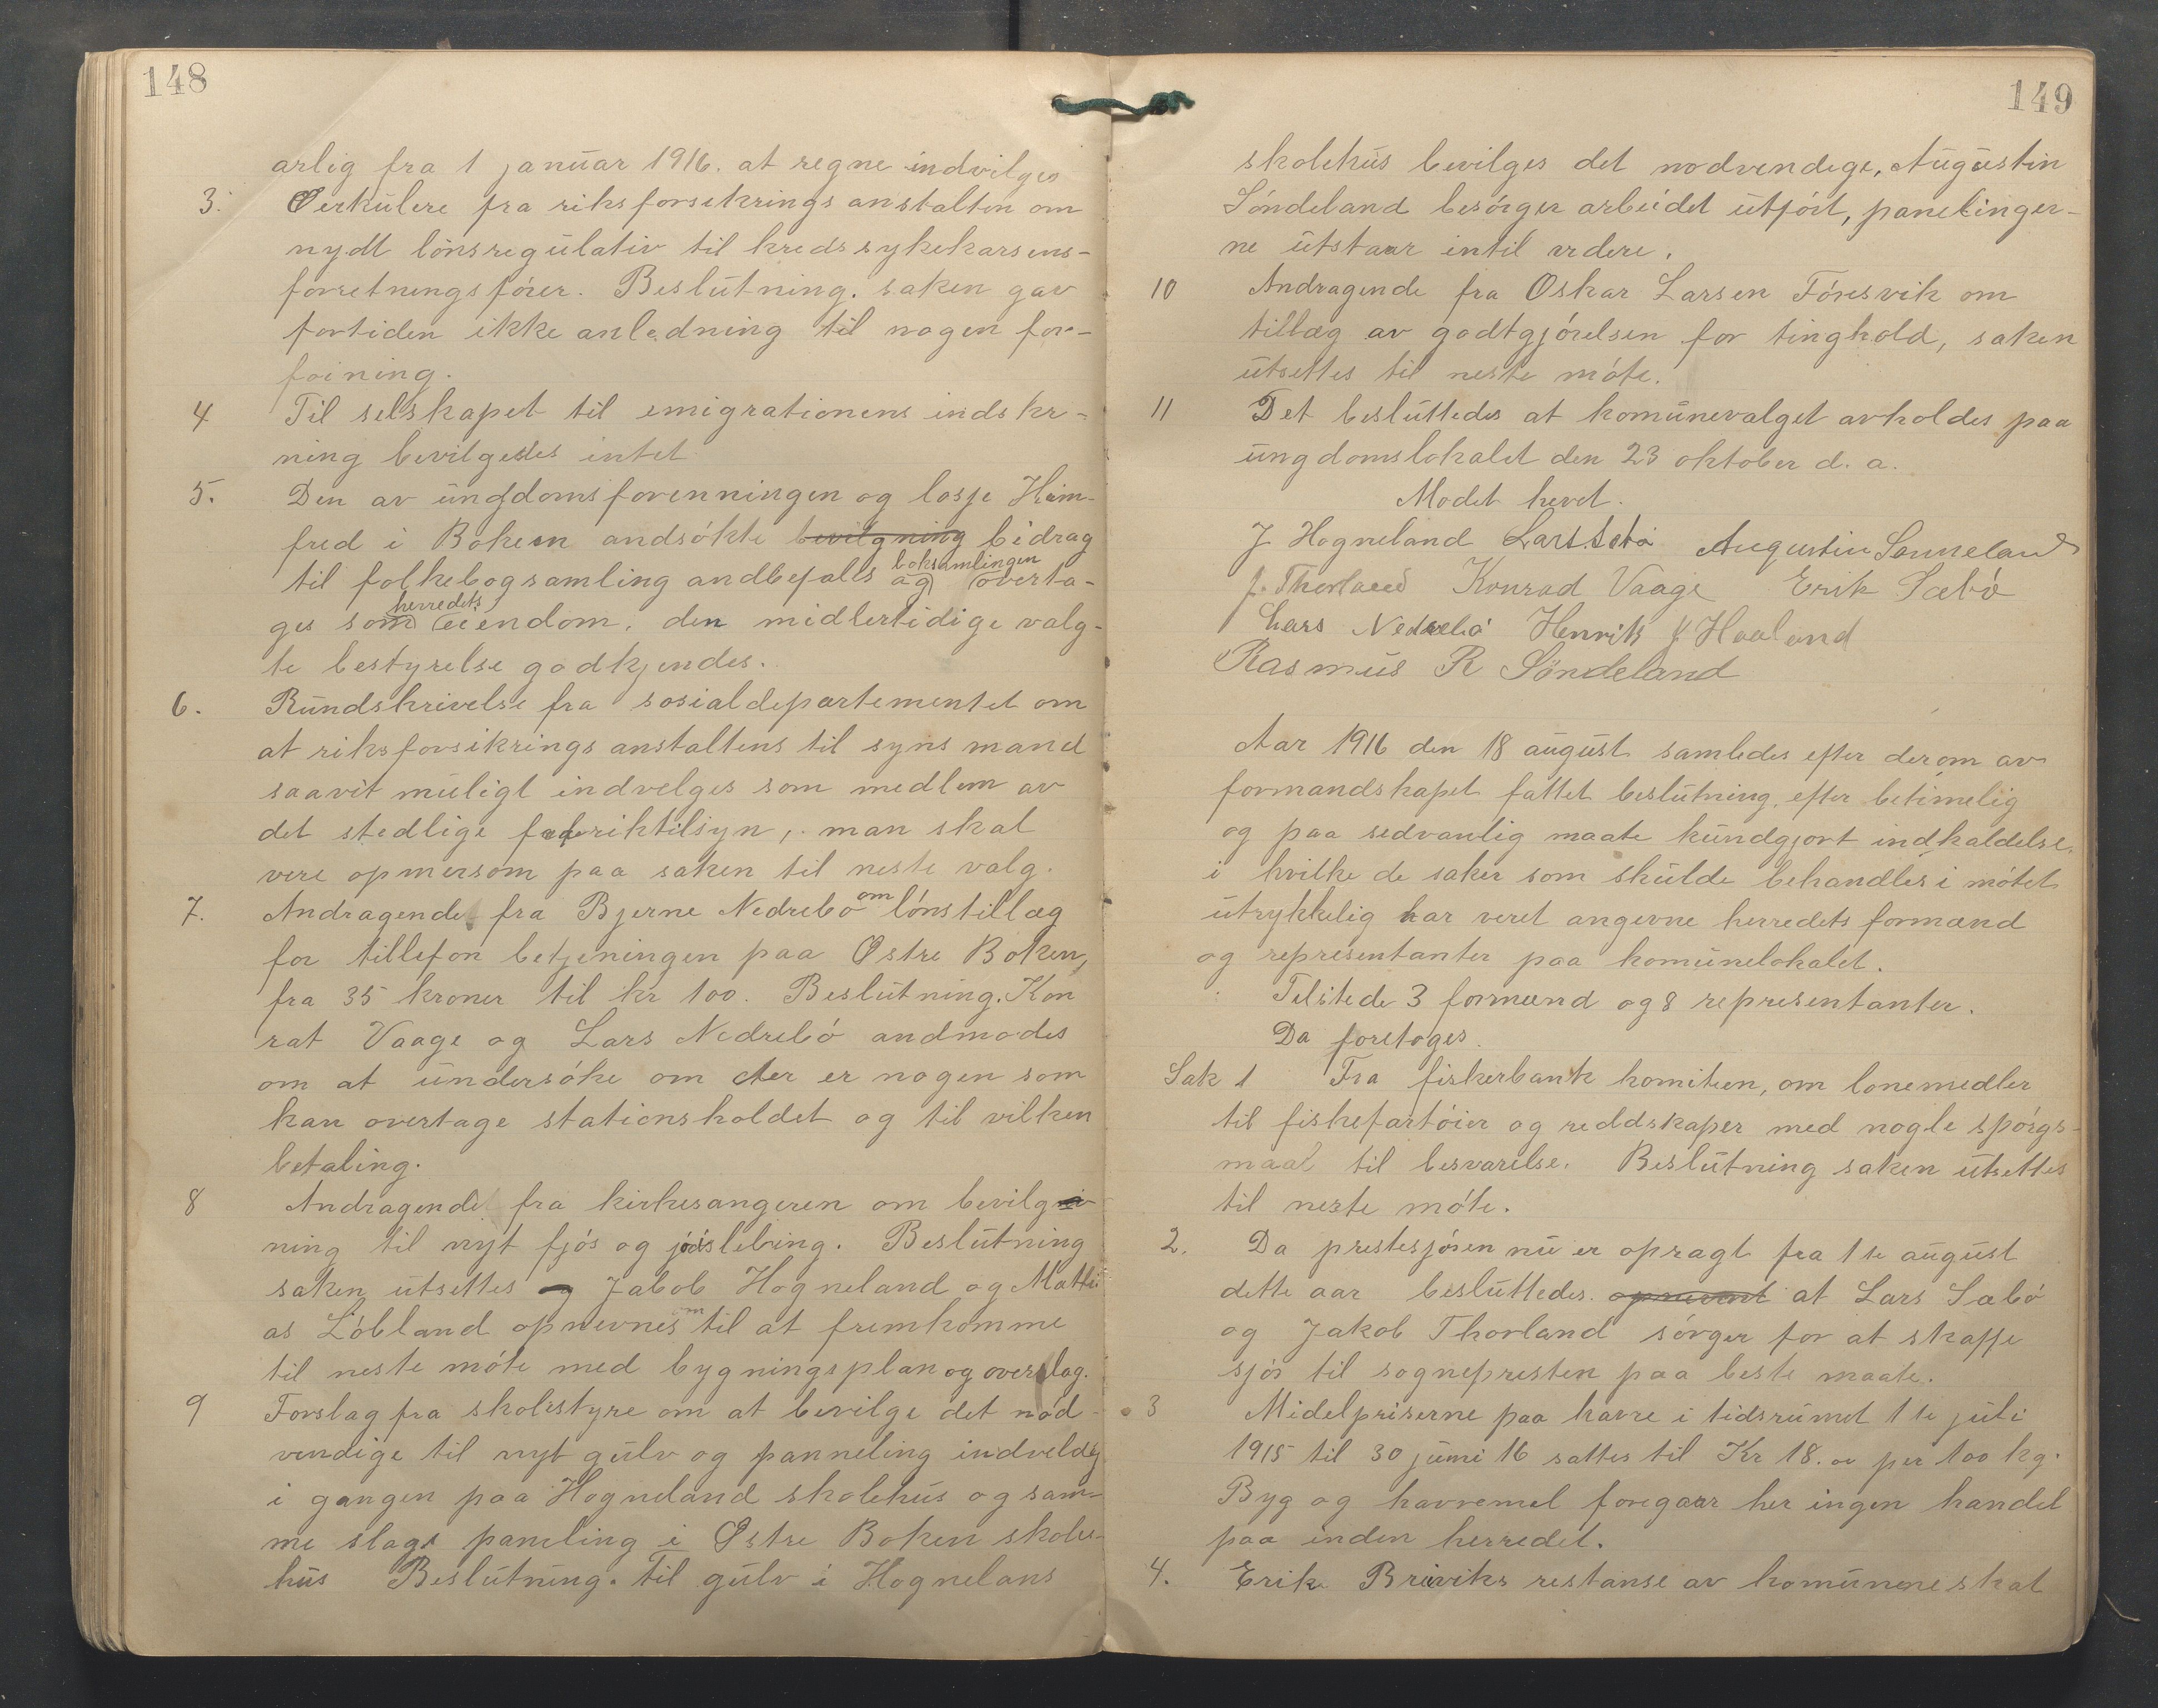 148
arlig fra 1 januar 1916. at regne indvilges
3. Serkulere fra riksforsekringsanstalten om
nydt lönsregulativ til kredssykekarsens-
forretningsförer. Beslutning. saken gav
fortiden ikke anledning til nogen for-
foining.
4 Til selskapet til emigrationens indskr-
ning bevilgedes intet
5. Den av ungdomsforenningen og losje Heim-
fred i Boken andsökte bevilgning bidrag
til folkebogsamling andbefalls og boksamlingen overta-
ges som herredets eiendom. den midlertidige valg-
te bestyrelse godkjendes.
6. Rundskrivelse fra sosialdepartementet om
at riksforsikringsanstaltens til syns mand
saavit muligt indvelges som medlem av
det stedlige fabriktilsyn, man skal
vere opmersom paa saken til neste valg.
7. Andragende fra Bjerne Nedrebö om lönstillæg
for tillefon betjeningen paa Östre Boken,
fra 35 kroner til kr 100. Beslutning. Kon
rat Vaage og Lars Nedrebö andmodes
om at undersöke om der er nogen som
kan overtage stationsholdet og til vilken
betaling.
8 Andragende fra kirkesangeren om bevilg
ning til nyt fjös og jödslebing. Beslutning
saken utsettes og Jabob Hogneland og Matti
as Löbland opnevnes om til at fremkomme
til neste möte med bygningsplan og overslag.
9 Forslag fra skolestyre om at bevilge det nöd-
vendige til nyt gulv og panneling indveldig
i gangen paa Hogneland skolehus og sam-
me slags paneling i Östre Boken skole-
hus Beslutning. Til gulv i Hognelans
149
skolehus bevilges det nodvendege, Augustin
Söndeland besörger arbeidet utfört, panelinger-
ne utstaar intil videre.
10 Andragende fra Oskar Larsen Föresvik om
tillæg av godtgjörelsen for tinghold, saken
utsettes til neste möte.
11 Det besluttedes at komunevalget avholdes paa
ungdomslokalet den 23 oktober d. a.
Modet hevet.
J Hogneland Lars Sebö Augustin Sönneland
J. Thorland Konrad Vaage Erik Sæbö
Lars Nedrebö Henrik J. Haaland
Rasmus R Söndeland
Aar 1916 den 18 august samledes efter derom av
formandskapet fattet beslutning, efter betimelig
og paa sedvanlig maate kundgjort indkaldelse,
i hvilke de saker som skulde behandles i mötet
utrykkelig har veret angevne herredets formænd
og representanter paa komunelokalet.
Tilstede 3 formænd og 8 representanter.
Da foretoges.
Sak 1 Fra fiskerbank komiteen, om lonemedler
til fiskefartöier og reddskaper med nogle spörgs-
maal til besvarelse. Beslutning saken utsettes
til neste möte.
2. Da prestesjösen nu er opragt fra 1te august
dette aar besluttedes. opnevnt at Lars Sæbö
og Jakob Thorland sörger for at skaffe
sjös til sognepresten paa beste maate.
3 Midelpriserne paa havre i tidsrumet 1te juli
1915 til 30 juni 16 sattes til Kr 18.00 per 100 kg.
Byg og havremel foregaar her ingen handel
paa inden herredet.
4. Erik Breiviks restanse av komuneneskat